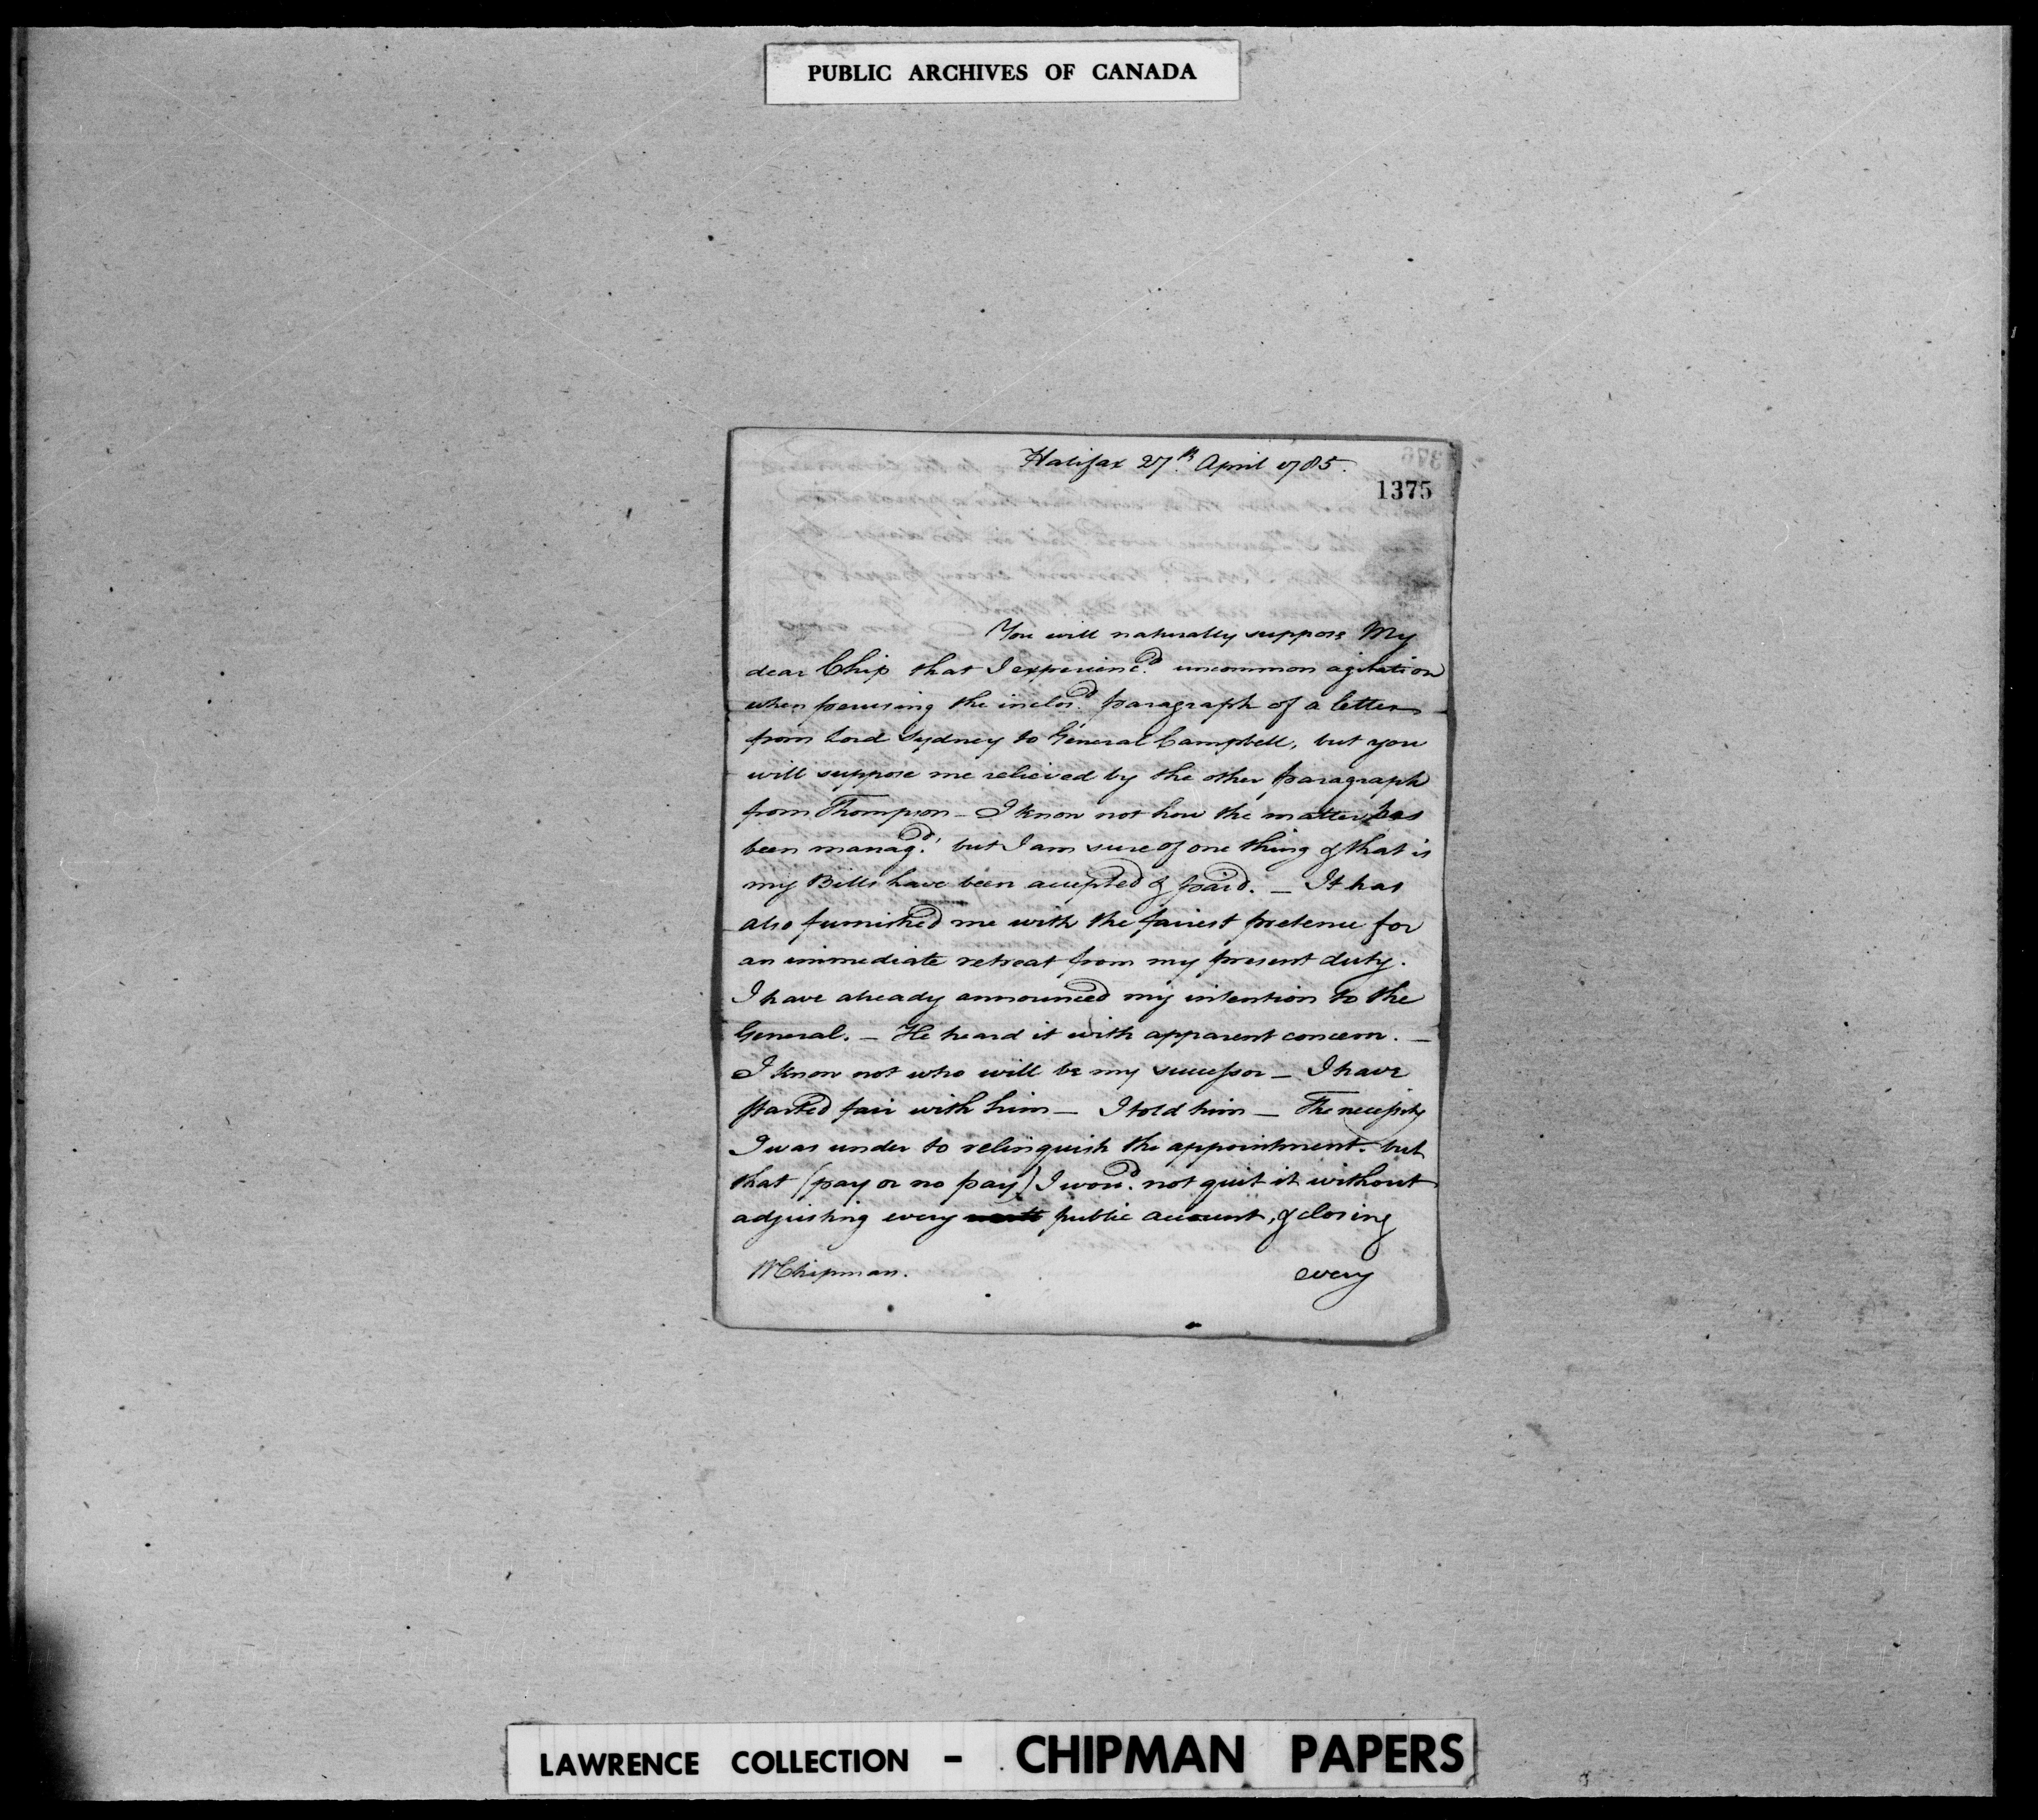 PUBLIC ARCHIVES OF CANADA
Halifax 27th April 1785.
1375
You will naturally suppose My
dear Chip that I experienc'd uncommon agitation
when perusing the inclos'd paragraph of a letter
from Lord Sydney to General Campbell, but you
will suppose me relieved by the other paragraph
from Thompson - I know not how the matter has
been manag'd but I am sure of one thing & that is
my Bills have been accepted & paid. - It has
also furnished me with the fairest pretence for
an immediate retreat from my present duty.
I have already announced my intention to the
General. - He heard it with apparent concern. -
I know not who will be my successor - I have
started fair with him - I told him - The necessity
I was under to relinquish the appointment. but
that (pay or no pay) I wou'd not quit it without
adjusting every public account, & closing
W Chipman. every
LAWRENCE COLLECTION - CHIPMAN PAPERS